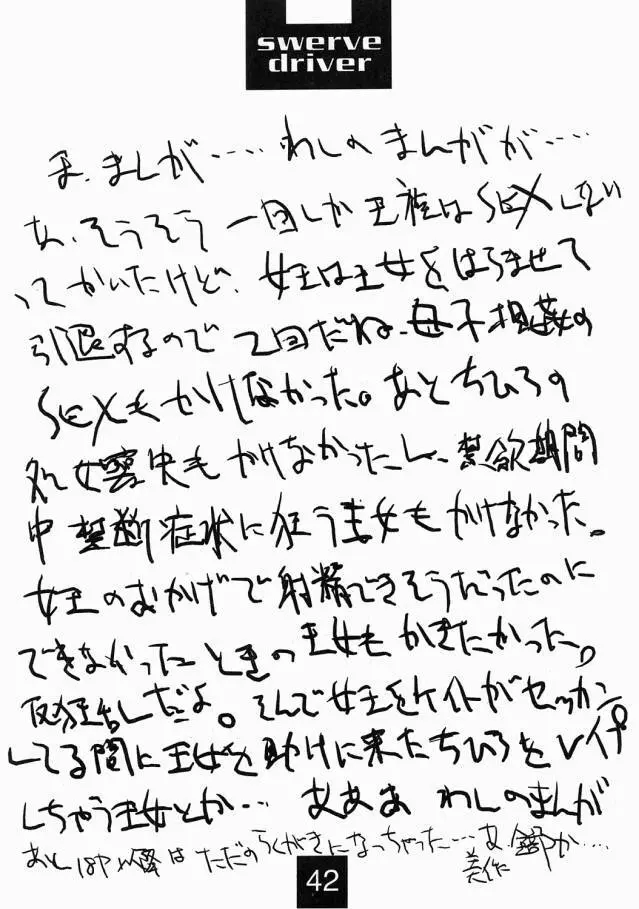 swerve
driver
ま、まんが‥‥ わしの まんがが‥‥
あ、そうそう 一回しか 王族は SEXしない
ってかいたけど、女王は王女をはらませて
引退するので 2回だね、母子相姦の
SEXもかけなかった。あと ちひろの
処女喪失も かけなかったし、禁欲期間
中 禁断症状に狂う王女も かけなかった。
女王のおかげで射精できそうだったのに
できなかったときの 王女も かきたかった。
半狂乱だよ。そんで女王をケイトがセッカン
してる間に王女を助けに来たちひろをレイプ
しちゃう王女とか… あああ わしのまんが
あと 以降は ただの らくがきになっちゃった…
42